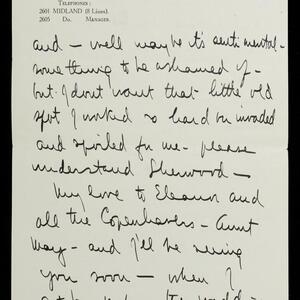 TELEPHONES:
2601 MIDLAND (8 Lines).
2605 Do. MANAGER.
and — well maybe it's sentimental —
something to be ashamed of —
but I dont want that little old
spot I worked so hard on invaded
and spoiled for me — please
understand Sherwood —
My love to Eleanor and
all the Copenhavers — Aunt
May — and I'll be seeing
you soon — when I